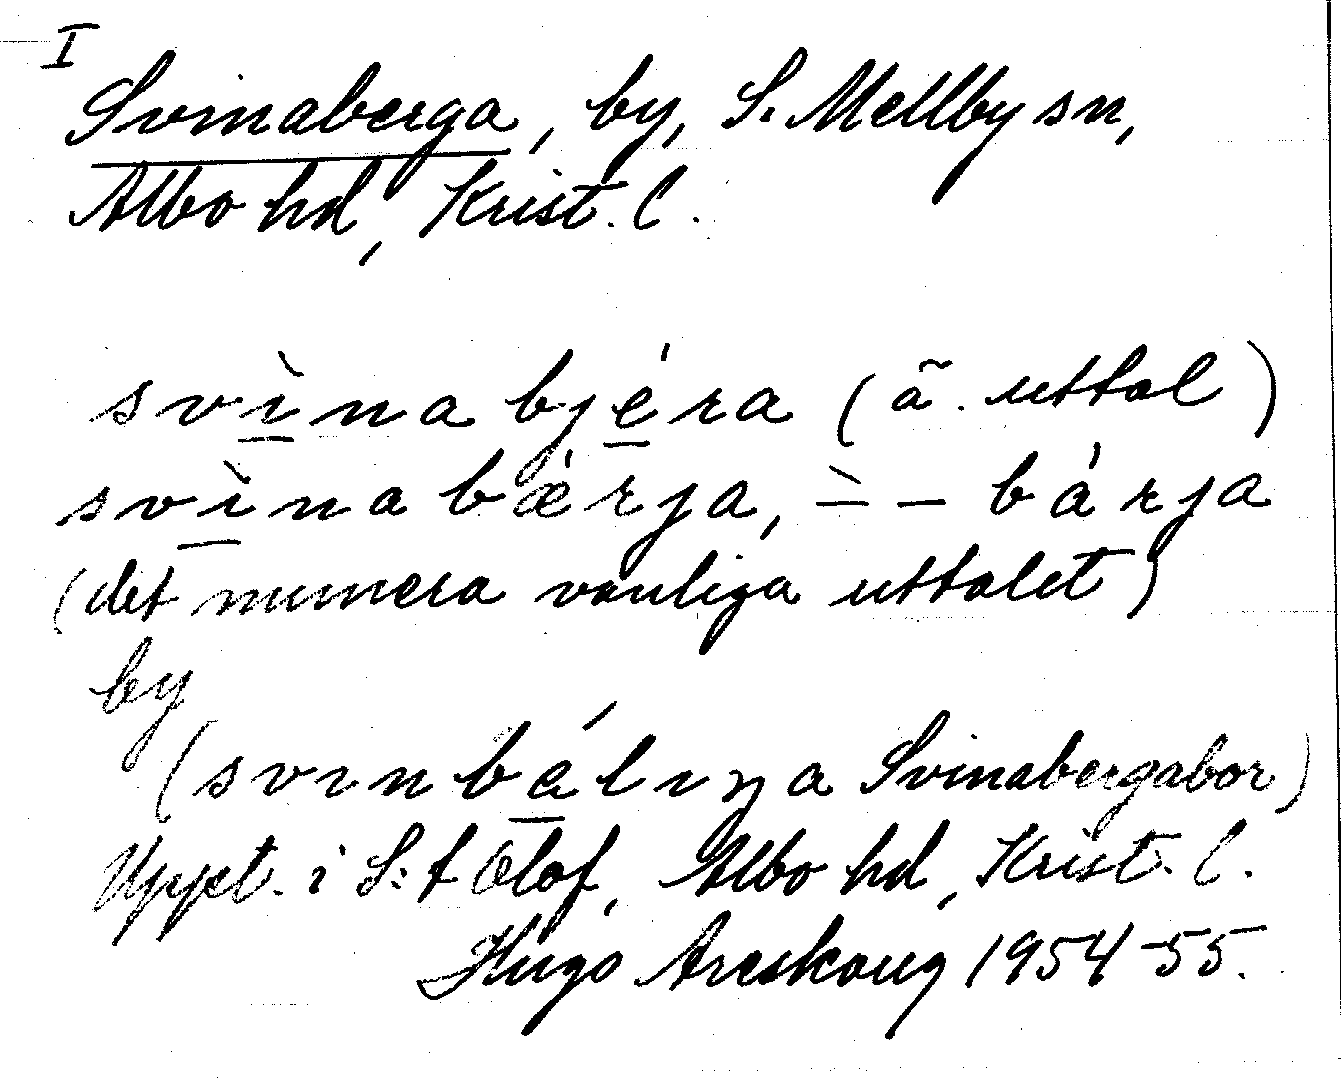 I
Svinaberga, by, S. Mellby sn,
Albo hd, Krist. l.
svìnabjéra (ã. uttal)
svìnabǽrja, ‒̀ – bárja
(det numera vanliga uttalet)
by
(svinbáliŋa Svinabergabor)
Uppt. i S:t Olof, Albo hd, Krist. l.
Hugo Areskoug 1954-55.